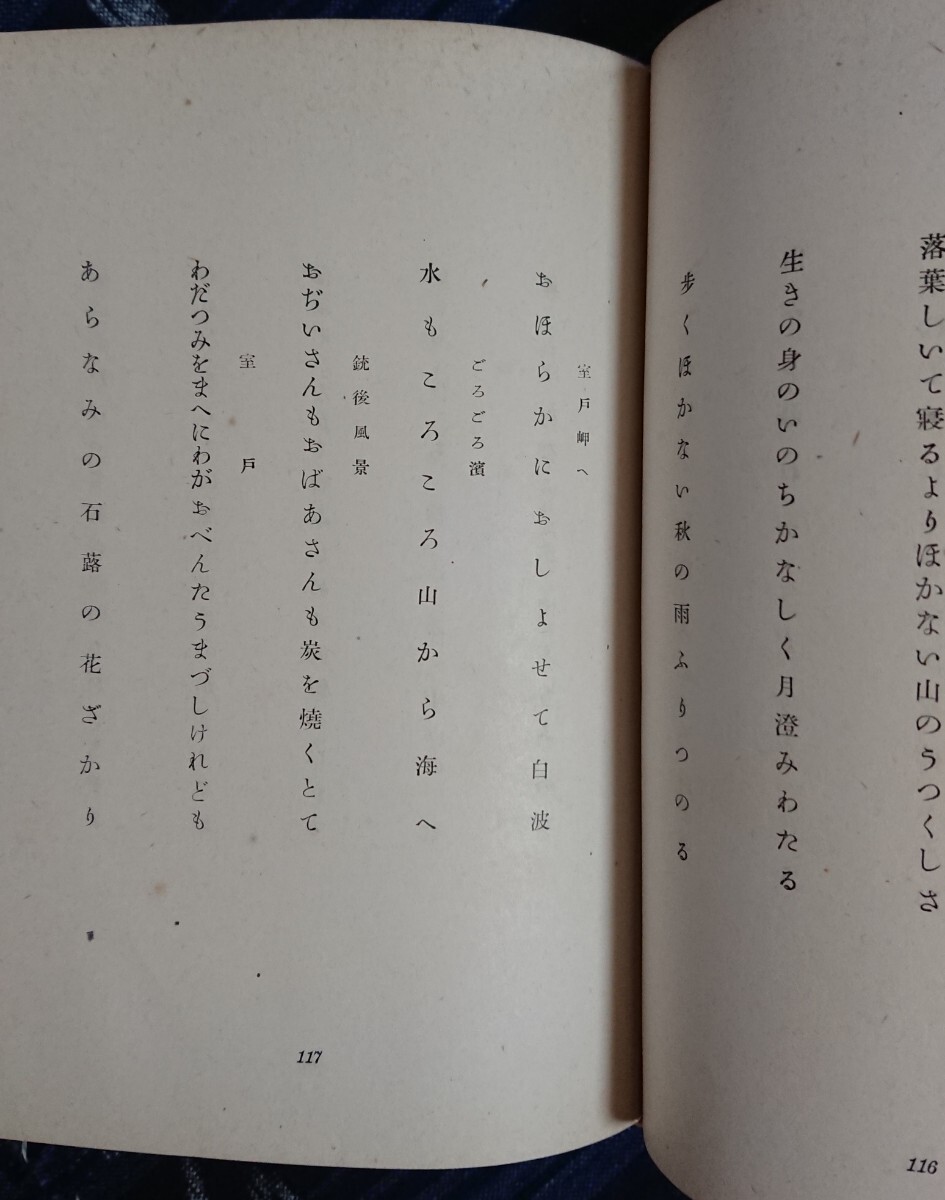 落葉しいて寝るよりほかない山のうつくしさ
生きの身のいのちかなしく月澄みわたる
歩くほかない秋の雨ふりつのる
116
室戸岬へ
おほらかにおしよせて白波
ごろごろ濱
水もころころ山から海へ
銃後風景
おぢいさんもおばあさんも炭を燒くとて
室戸
わだつみをまへにわがおべんたうまづしけれども
あらなみの石蕗の花ざかり
117